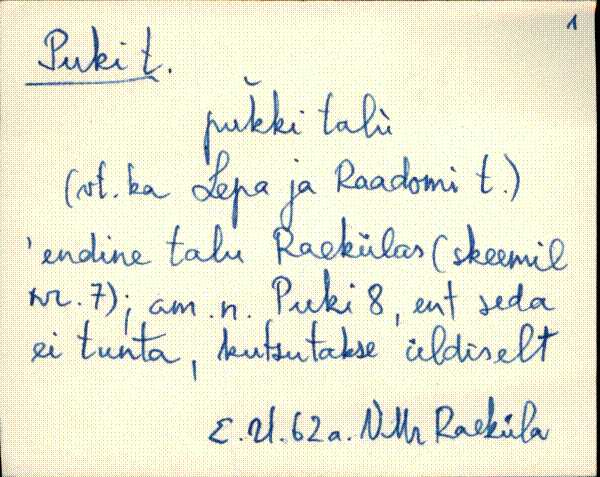 1
Puki t.
pŭkki talù
(vt. ka Lepa ja Raadomi t.)
'endine talu Raekülas (skeemil
nr. 7); am. n. Puki 8, ent seda
ei tunta, kutsutakse üldiselt
E. U. 62a. NMr Raeküla